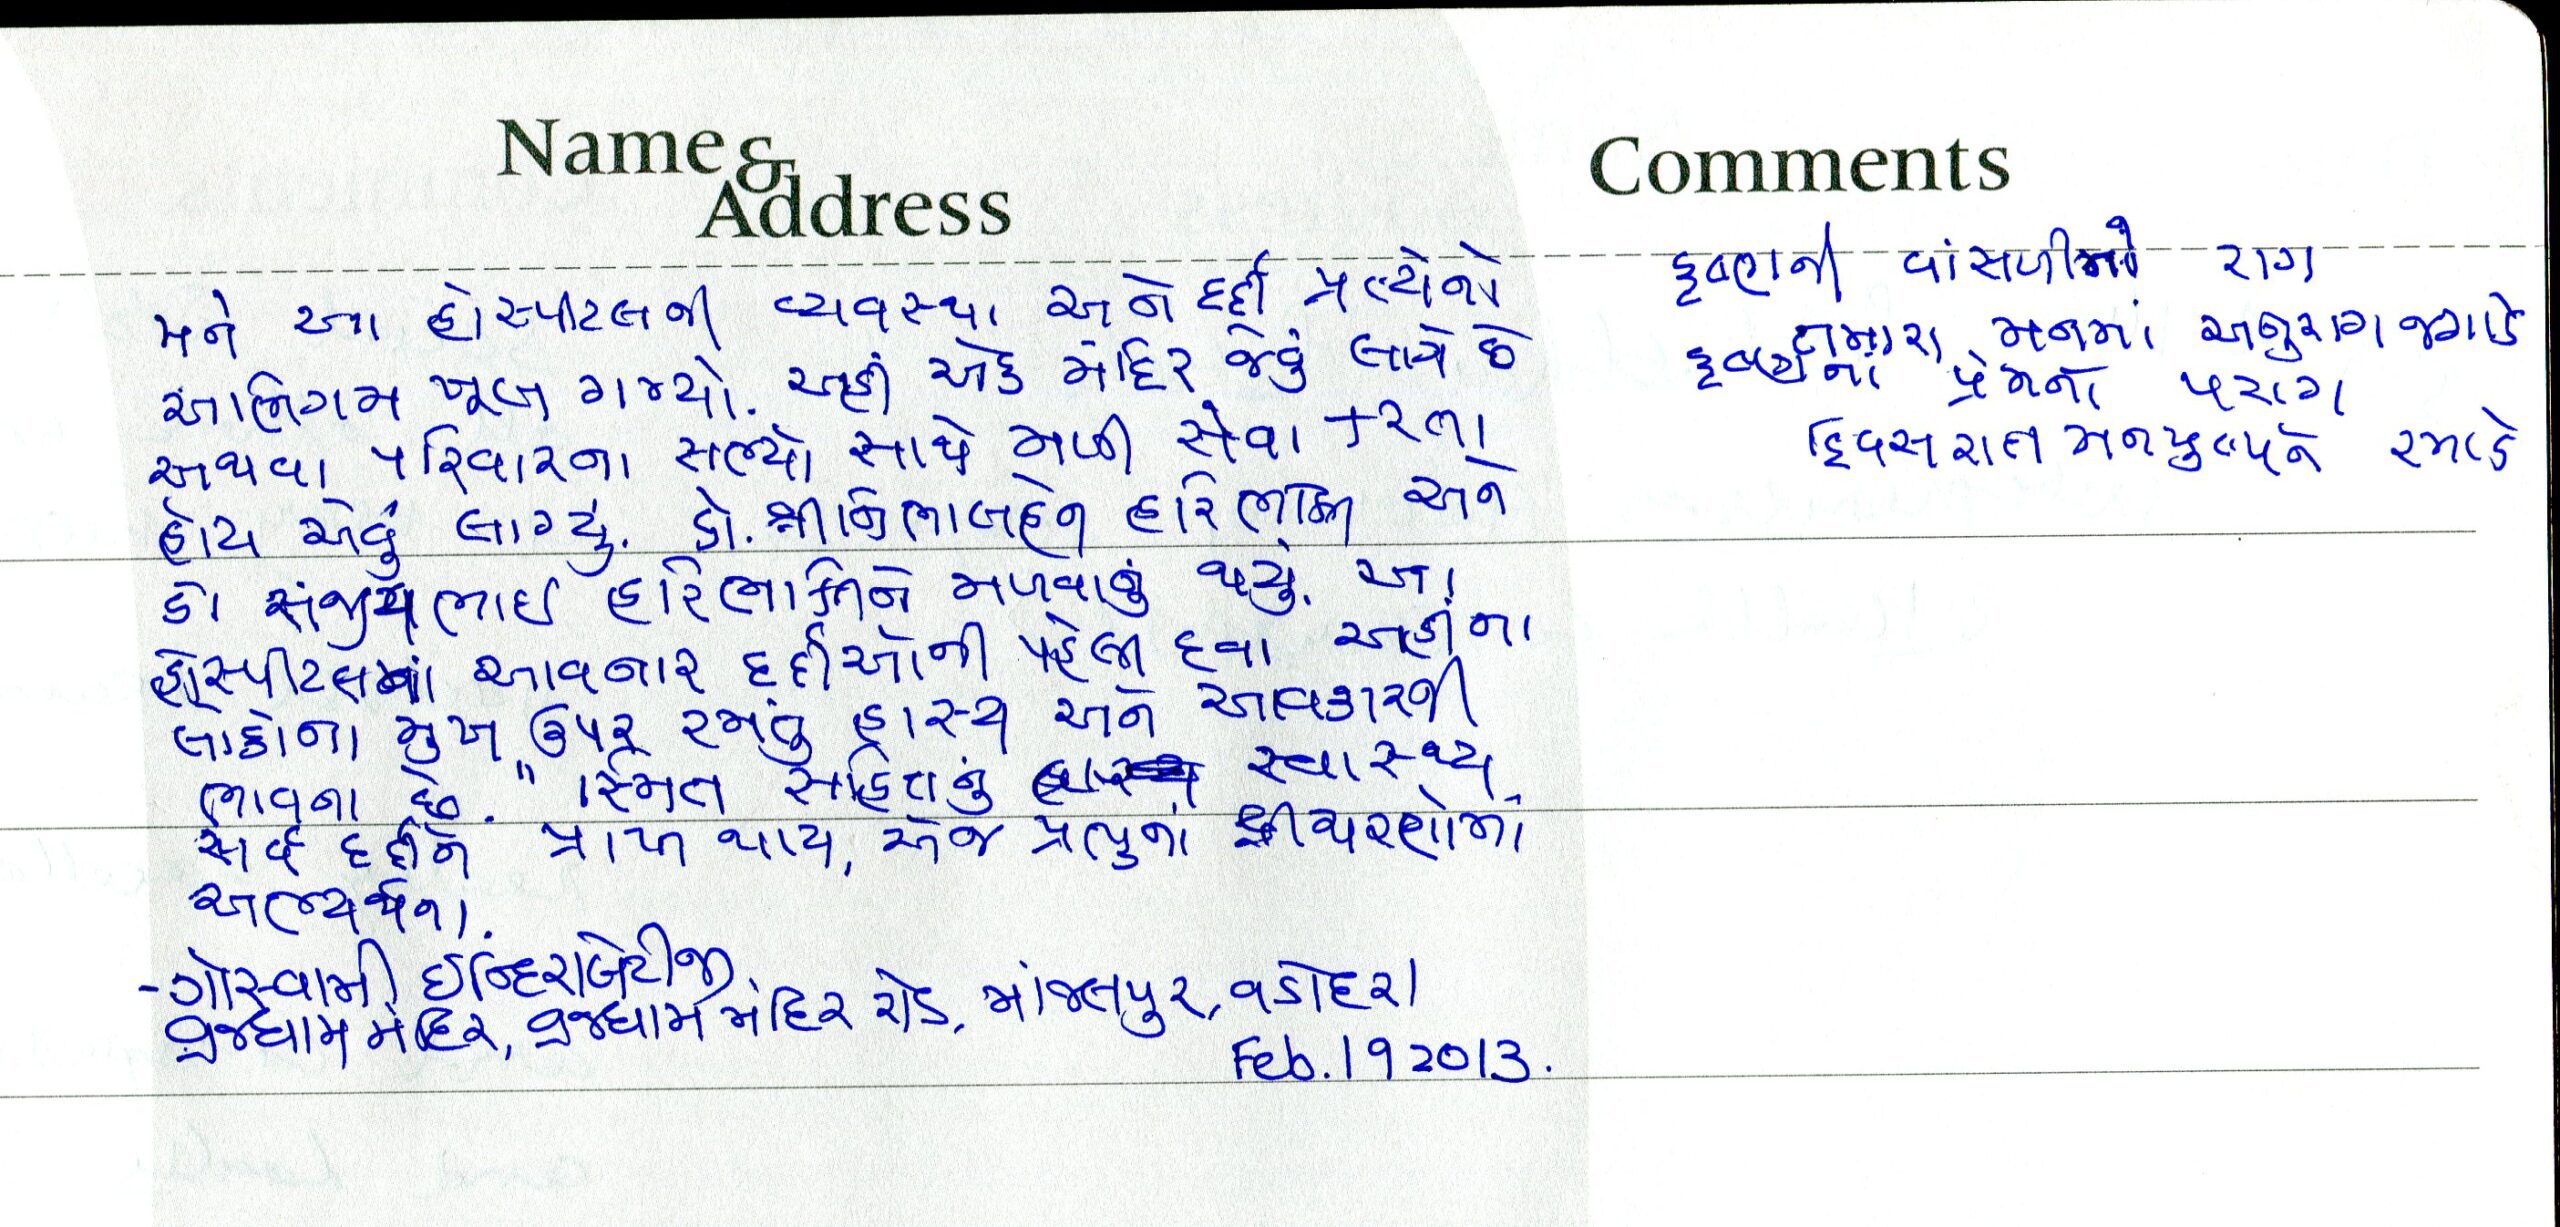 Name &
Address
મને આ હોસ્પીટલની વ્યવસ્થા અને દર્દી પ્રત્યેનો
અભિગમ ખૂબ ગમ્યો. અહીં એક મંદિર જેવું લાગે છે
અથવા પરિવારના સભ્યો સાથે મળી સેવા કરતા
હોય એવું લાગ્યું. ડો. શ્રી હરિભક્તિ અને
ડો સંજયભાઈ હરિભક્તિને મળવાનું થયું. આ
હોસ્પીટલમાં આવનાર દર્દીઓની પહેલી દવા અહીંના
લોકોના મુખ ઉપર રમતું હાસ્ય અને આવકારની
ભાવના છે. "સ્મિત સહિતનું સ્વાસ્થ્ય
સર્વ દર્દીને પ્રાપ્ત થાય, એજ પ્રભુનાં શ્રીચરણોમાં
અભ્યર્થના.
- ગોસ્વામી ઈન્દિરાબેટીજી
વ્રજધામ મંદિર, વ્રજધામ મંદિર રોડ, માંજલપુર, વડોદરા
Feb. 19 2013.
Comments
કૃષ્ણની વાંસળીનો રાગ
તમારા મનમાં અનુરાગ જગાડે
કૃષ્ણનાં પ્રેમનો પરાગ
દિવસરાત મનપુષ્પને રમાડે